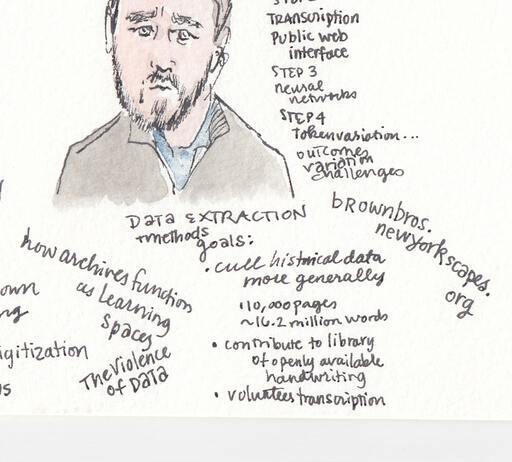 Transcription
Public web
interface
STEP 3
neural
networks
STEP 4
Token variation...
outcomes
variation
challenges
DATA EXTRACTION
+methods
goals:
• cull historical data
more generally
• 10,000 pages
~16.2 million words
• contribute to library
of openly available
handwriting
• volunteer transcription
brownbros.
newyorkscapes.
org
how archives function
as learning
spaces
The Violence
of Data
own
ng
igitization